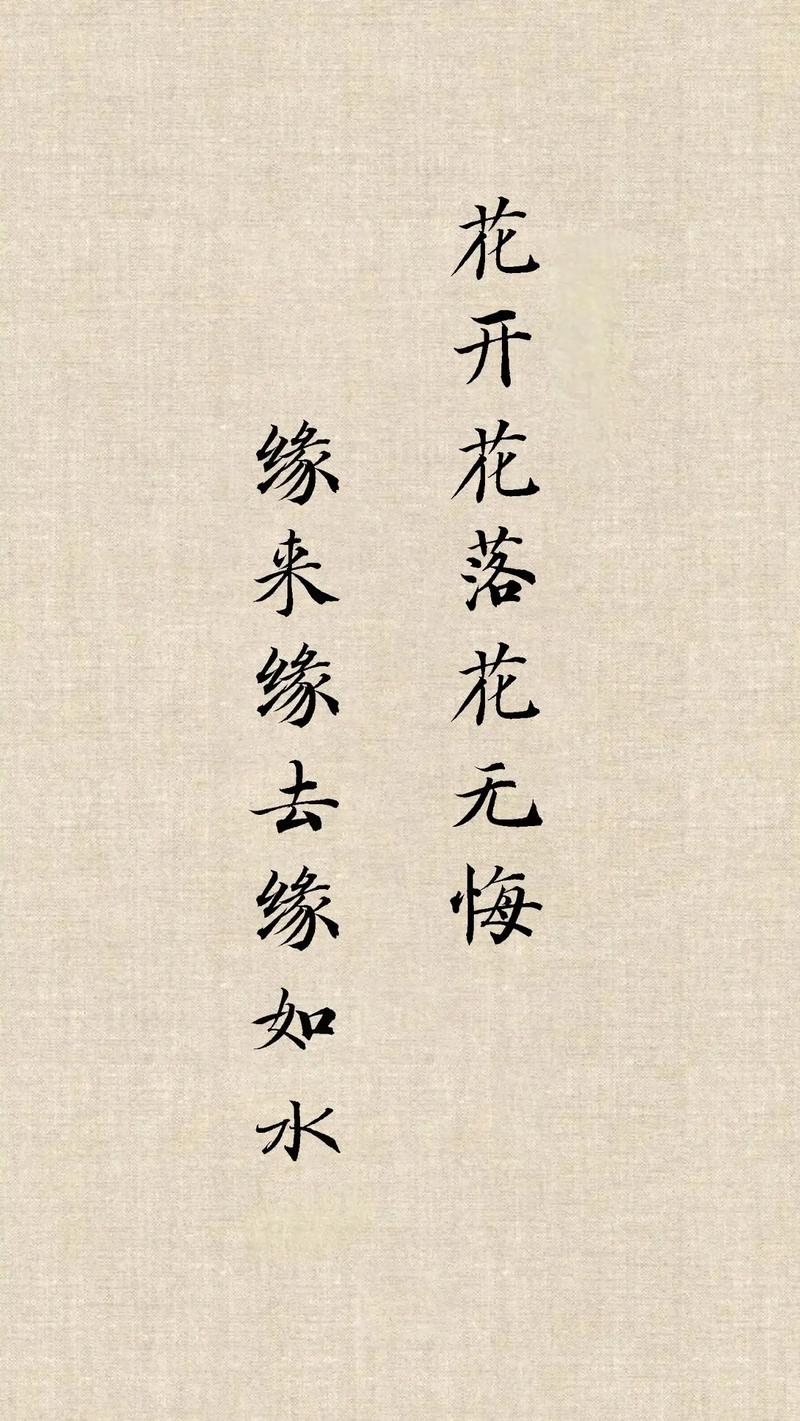 花开花落花无悔
缘来缘去缘如水